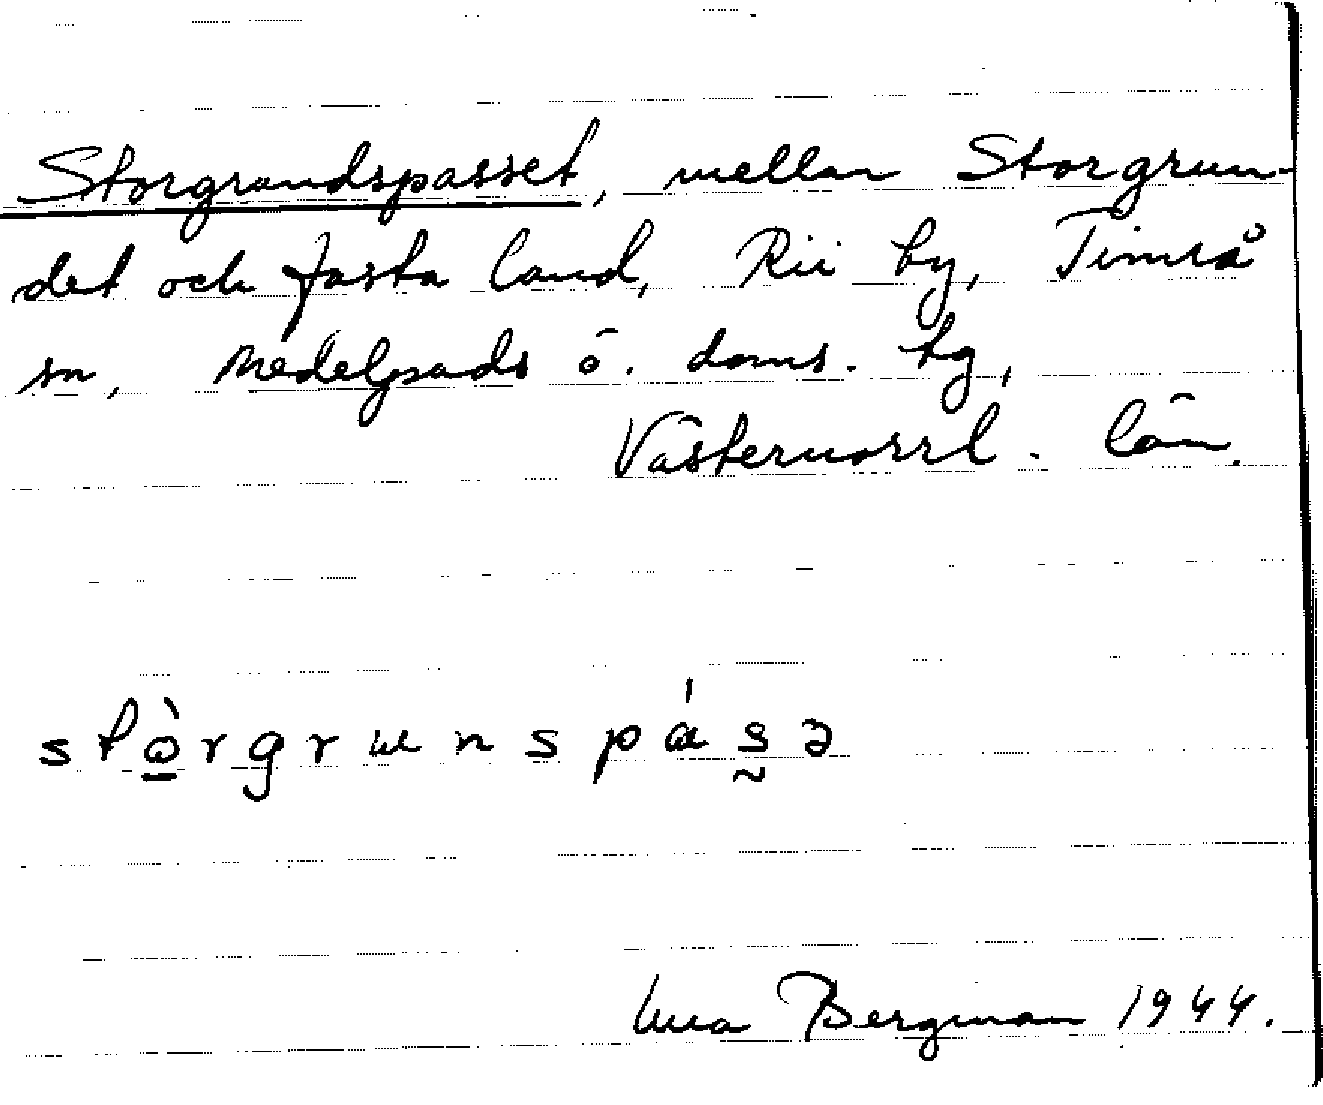 Storgrundspasset, mellan Storgrun-
det och fasta land, Rii by, Timrå
sn, Medelpads ö. doms. tg,
Västernorrl. län.
stò̱rgrɯnspás̰ə
Bergman 1944.